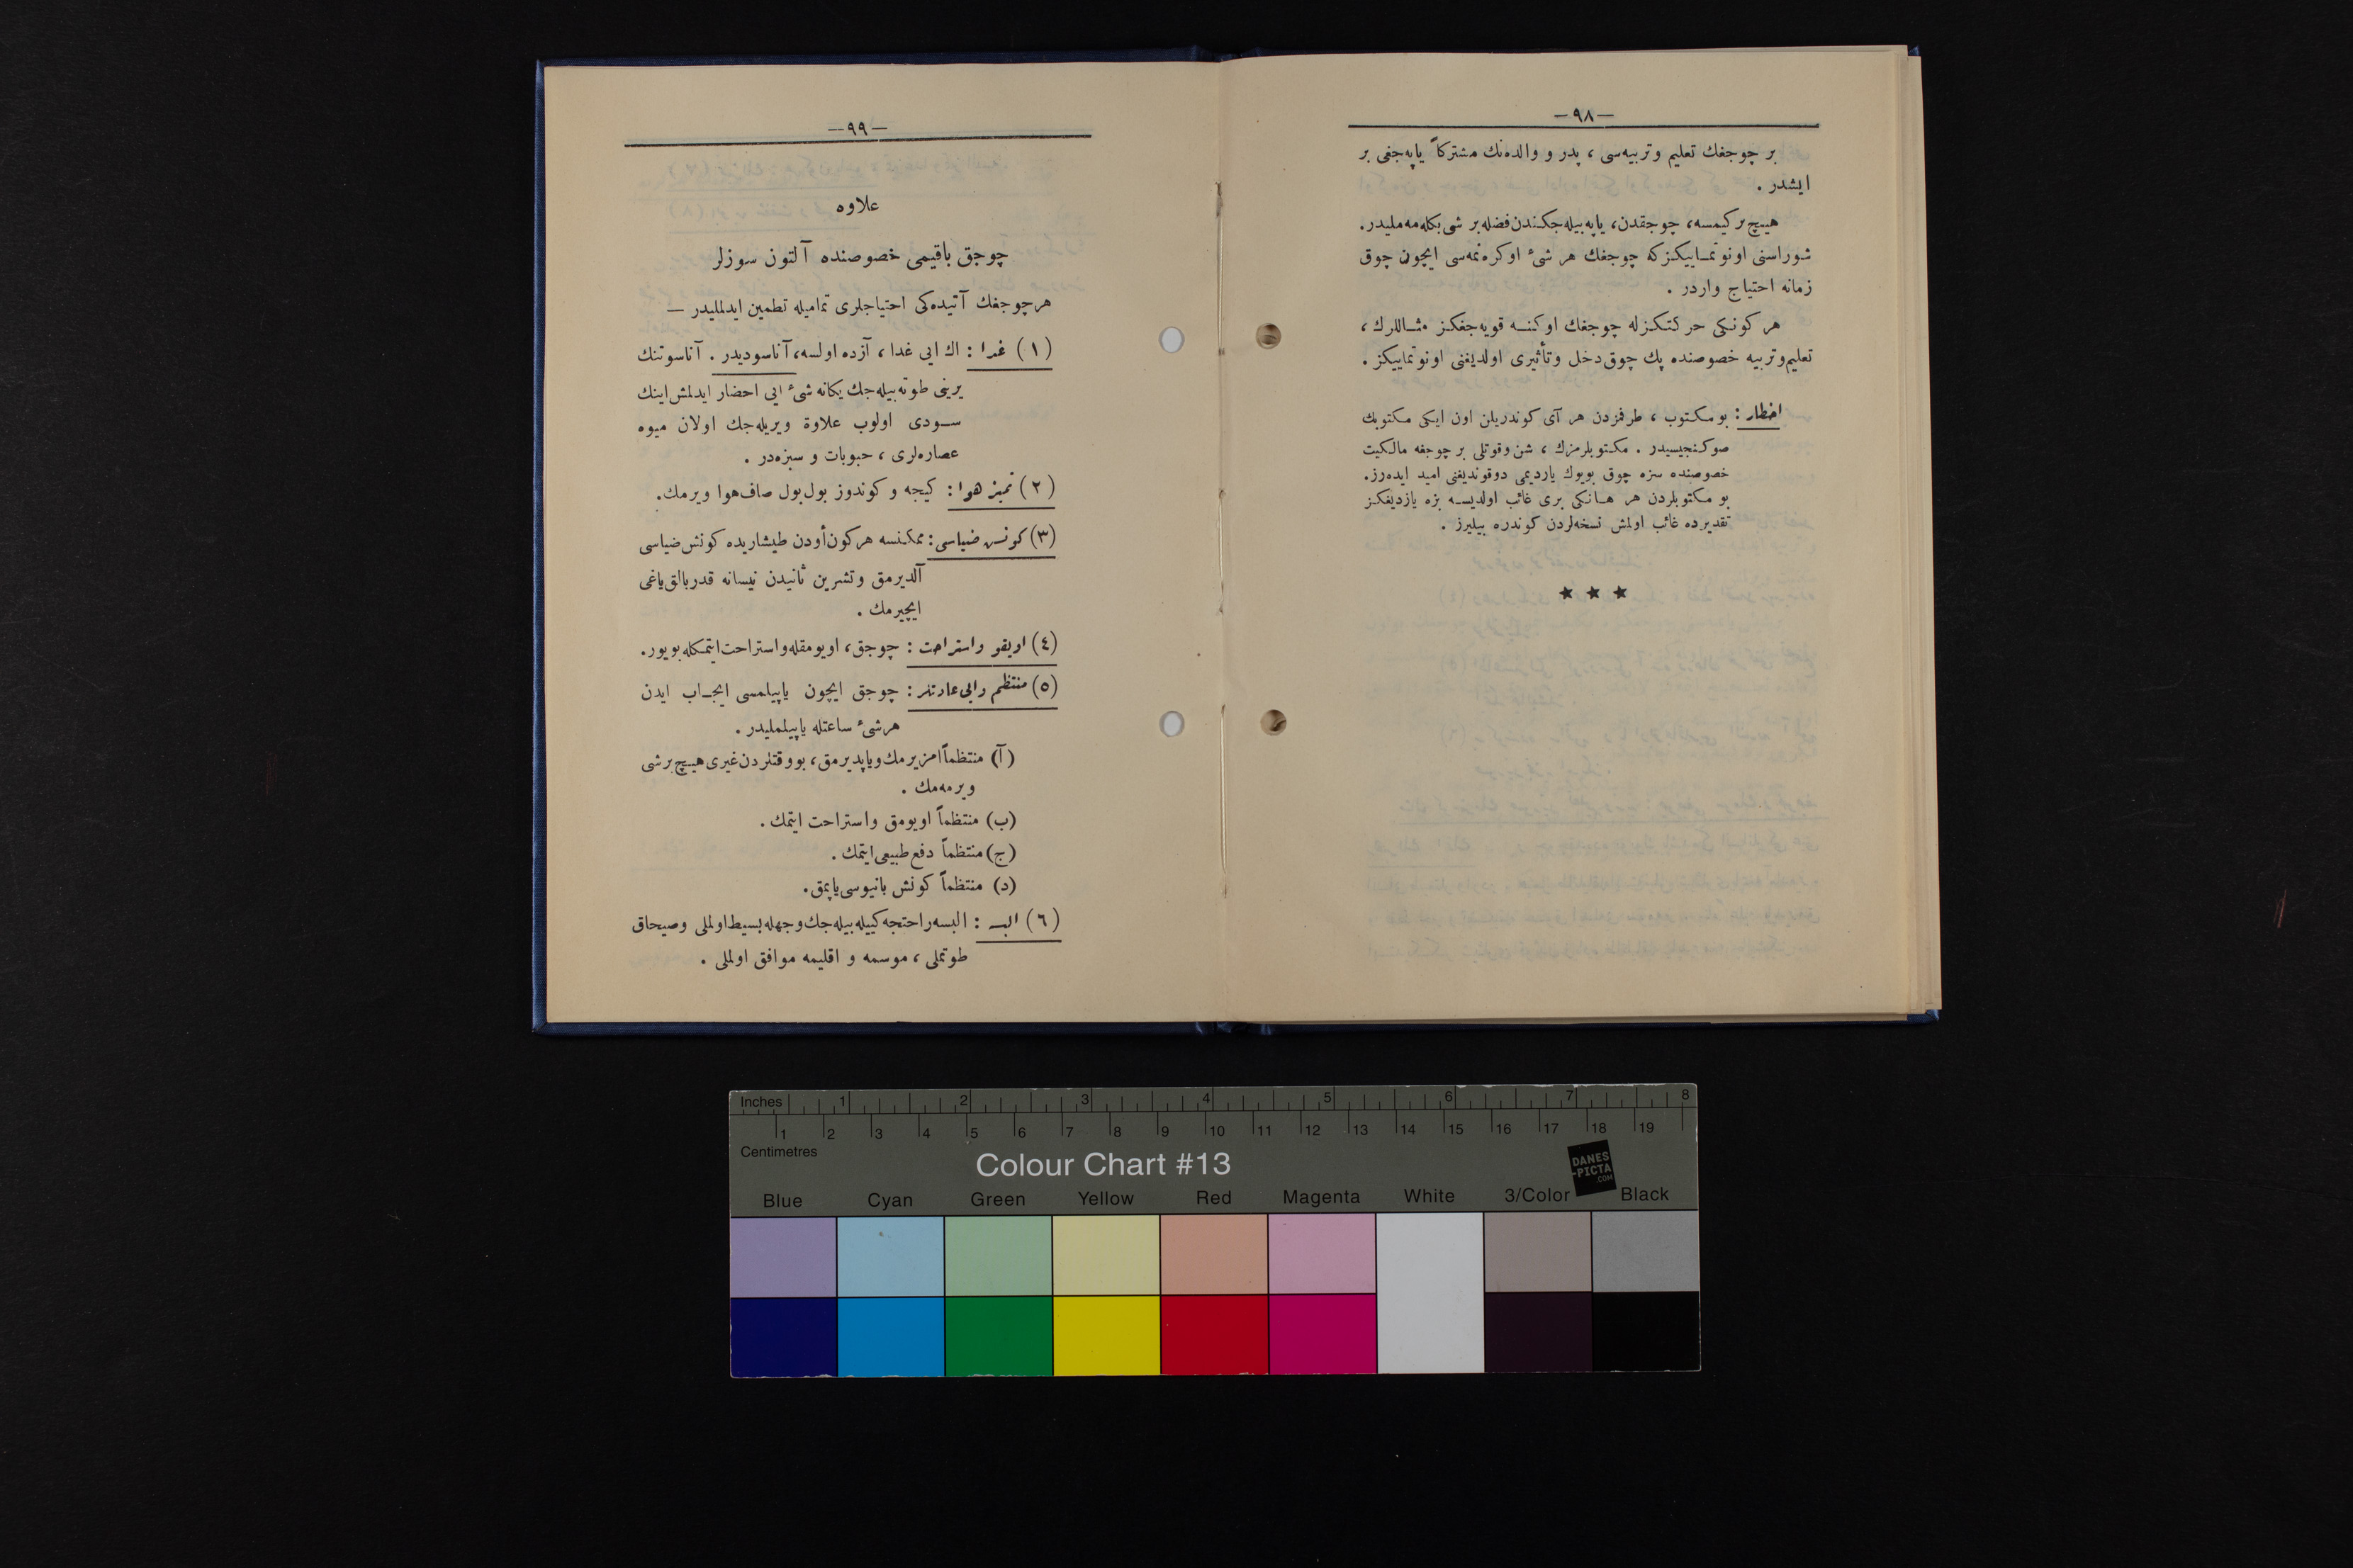 —٩٨—
بر چوجغك تعليم وتربيه‌سی ، پدر و والده‌نك مشتركاً ياپه‌جغی بر
ايشدر .
هيچ بر كيمسه، چوجقدن، ياپه‌بيله‌جكندن فضله بر شی بكله‌مه‌مليدر.
شوراسنی اونوتمايكزكه چوجغك هر شیء اوكره‌نمه‌سی ايچون چوق
زمانه احتياج واردر .
هر كونكی حركتكزله چوجغك اوكنه قويه‌جغكز مثاللرك ،
تعليم وتربيه خصوصنده پك چوق دخل وتأثيری اولديغنی اونوتمايكز .
اخطار : بو مكتوب ، طرفمزدن هر آی كوندريلن اون ايكی مكتوبك
صوكنجيسيدر . مكتوبلرمزك ، شن وقوتلی بر چوجغه مالكيت
خصوصنده سزه چوق بويوك يارديمی دوقونديغنی اميد ايده‌رز.
بو مكتوبلردن هر هانكی بری غائب اولديسه بزه يازديغكز
تقديرده غائب اولمش نسخه‌لردن كوندره بيليرز .
★ ★ ★
—٩٩—
علاوه
چوجق باقيمی خصوصنده آلتون سوزلر
هر چوجغك آتيده‌كی احتياجلری تماميله تطمين ايدلمليدر —
(١) غدا : اك ايی غدا ، آزده اولسه، آناسوديدر . آناسوتنك
يرينی طوته‌بيله‌جك يكانه شیء ايی احضار ايدلمش اينك
سودی اولوب علاوة ويريله‌جك اولان ميوه
عصاره‌لری ، حبوبات و سبزه‌در .
(٢) تميز هوا : كيجه و كوندوز بول بول صاف هوا ويرمك.
(٣) كونش ضياسی : ممكنسه هر كون أودن طيشاريده كونش ضياسی
آلديرمق وتشرين ثانيدن نيسانه قدر بالق ياغی
ايچيرمك .
(٤) اويقو واستراحت : چوجق، اويومقله واستراحت ايتمكله بويور.
(٥) منتظم وايی عادتلر : چوجق ايچون ياپيلمسی ايجاب ايدن
هر شیء ساعتله ياپيلمليدر .
(آ) منتظماً امزيرمك وياپديرمق، بو وقتلردن غيری هيچ بر شی
ويرمه‌مك .
(ب) منتظماً اويومق واستراحت ايتمك .
(ج) منتظماً دفع طبيعی ايتمك .
(د) منتظماً كونش بانيوسی ياپمق.
(٦) البسه : البسه راحتجه كييله‌بيله‌جك وجهله بسيط اولملی وصيجاق
طوتملی ، موسمه و اقليمه موافق اولملی .
Inches 1 2 3 4 5 6 7 8
1 2 3 4 5 6 7 8 9 10 11 12 13 14 15 16 17 18 19
Centimetres
Colour Chart #13
DANES
-PICTA
.COM
Blue Cyan Green Yellow Red Magenta White 3/Color Black